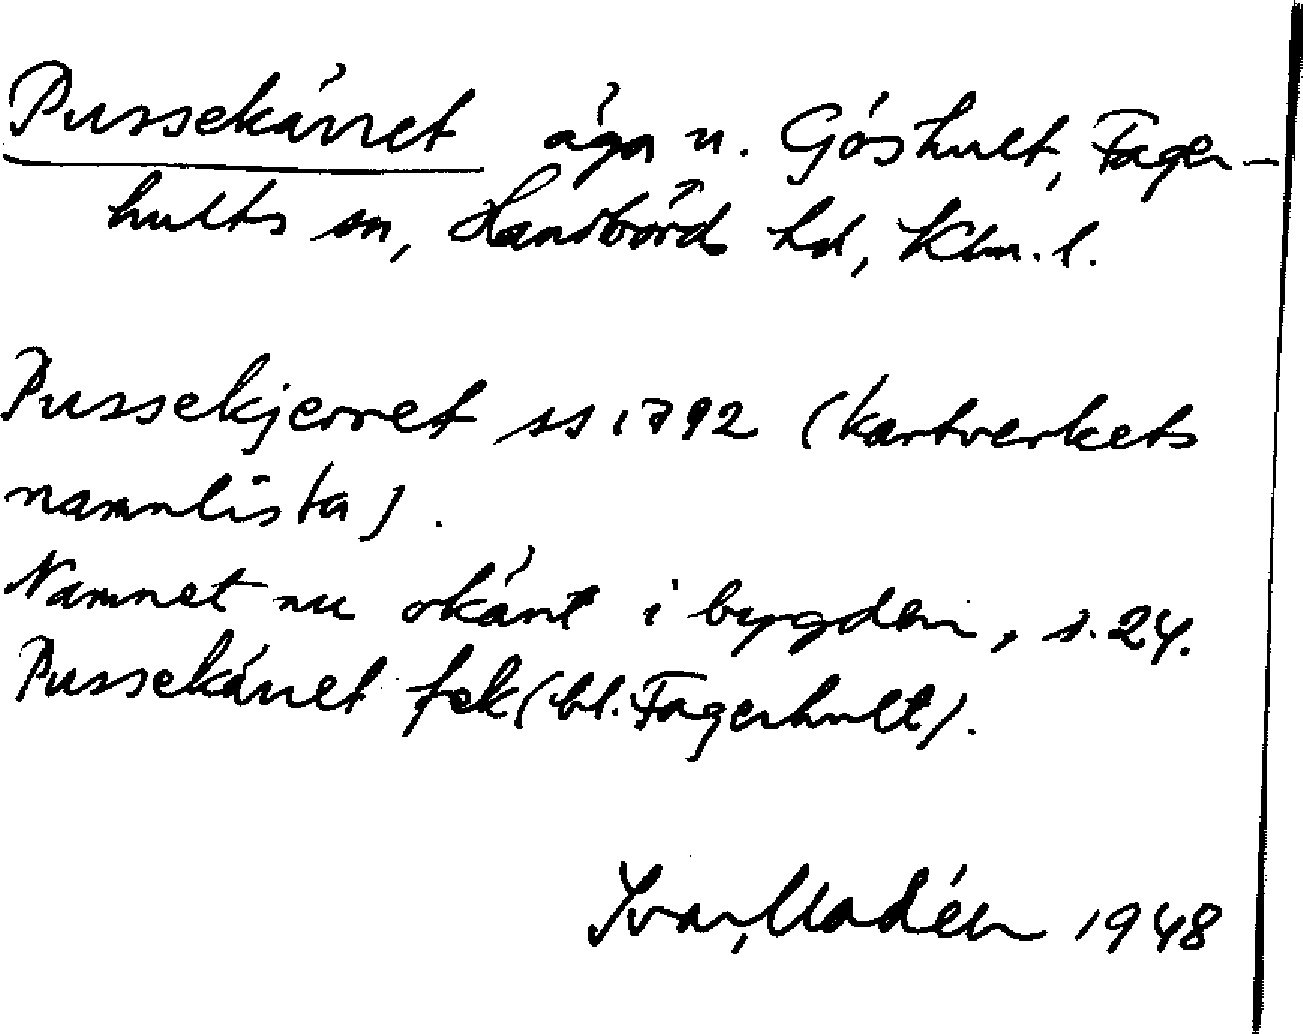 Pussekärret äga u. Göshult, Fager-
hults sn, Handbörds hd, Klm. l.
Pussekjerret ss 1792 (kartverkets
namnlista).
Namnet nu okänt i bygden, s. 24.
Pussekärret fek (bl. Fagerhult).
Ivar Modéer 1948